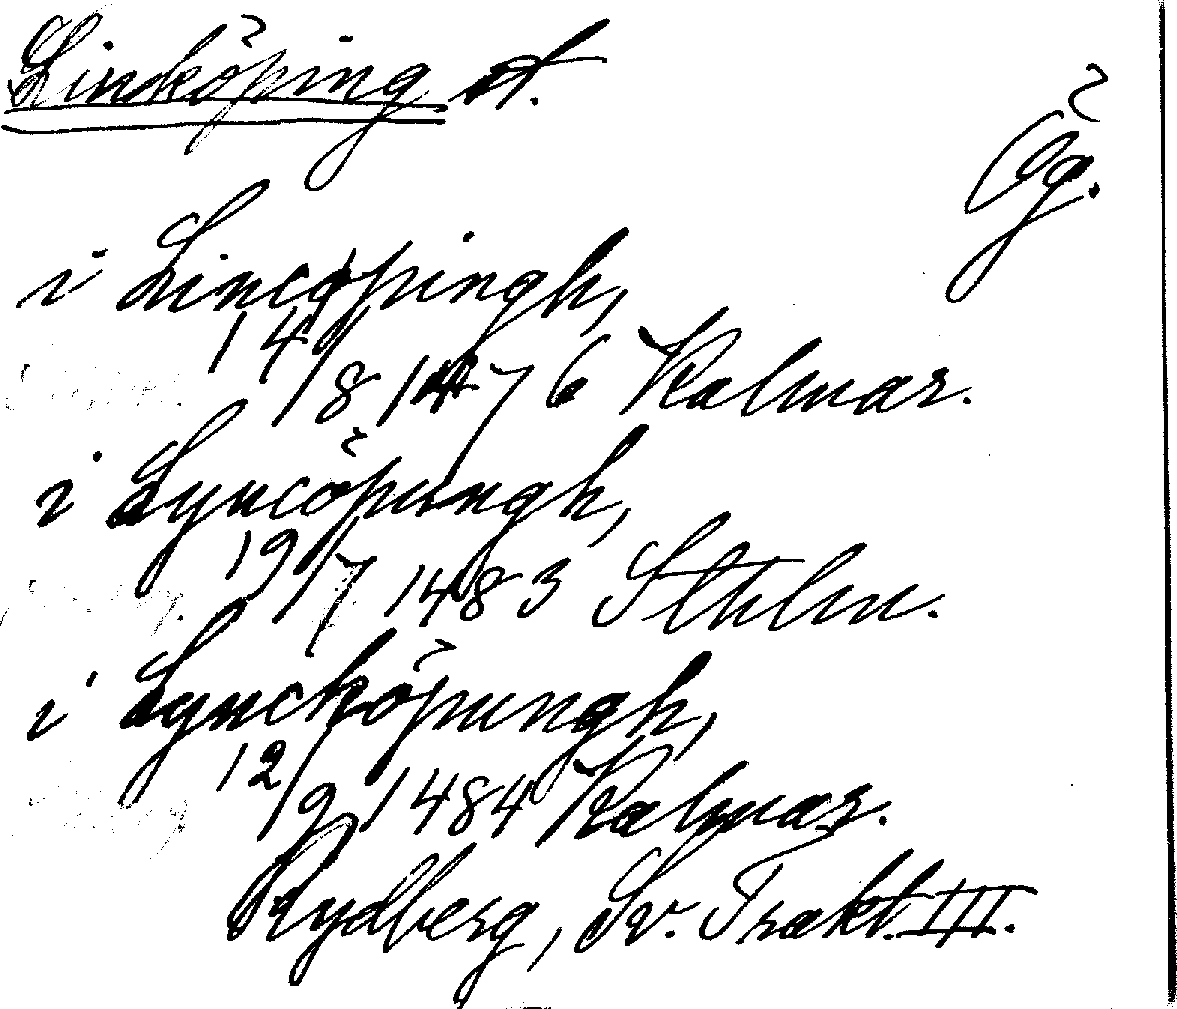 Linköping st.
Ög.
i Lincöpingh,
14/8 1476 Kalmar.
i Lyncöpungh,
19/7 1483 Sthlm.
i Lyncköpungh,
12/9 1484 Kalmar.
Rydberg, Sv. Trakt. III.